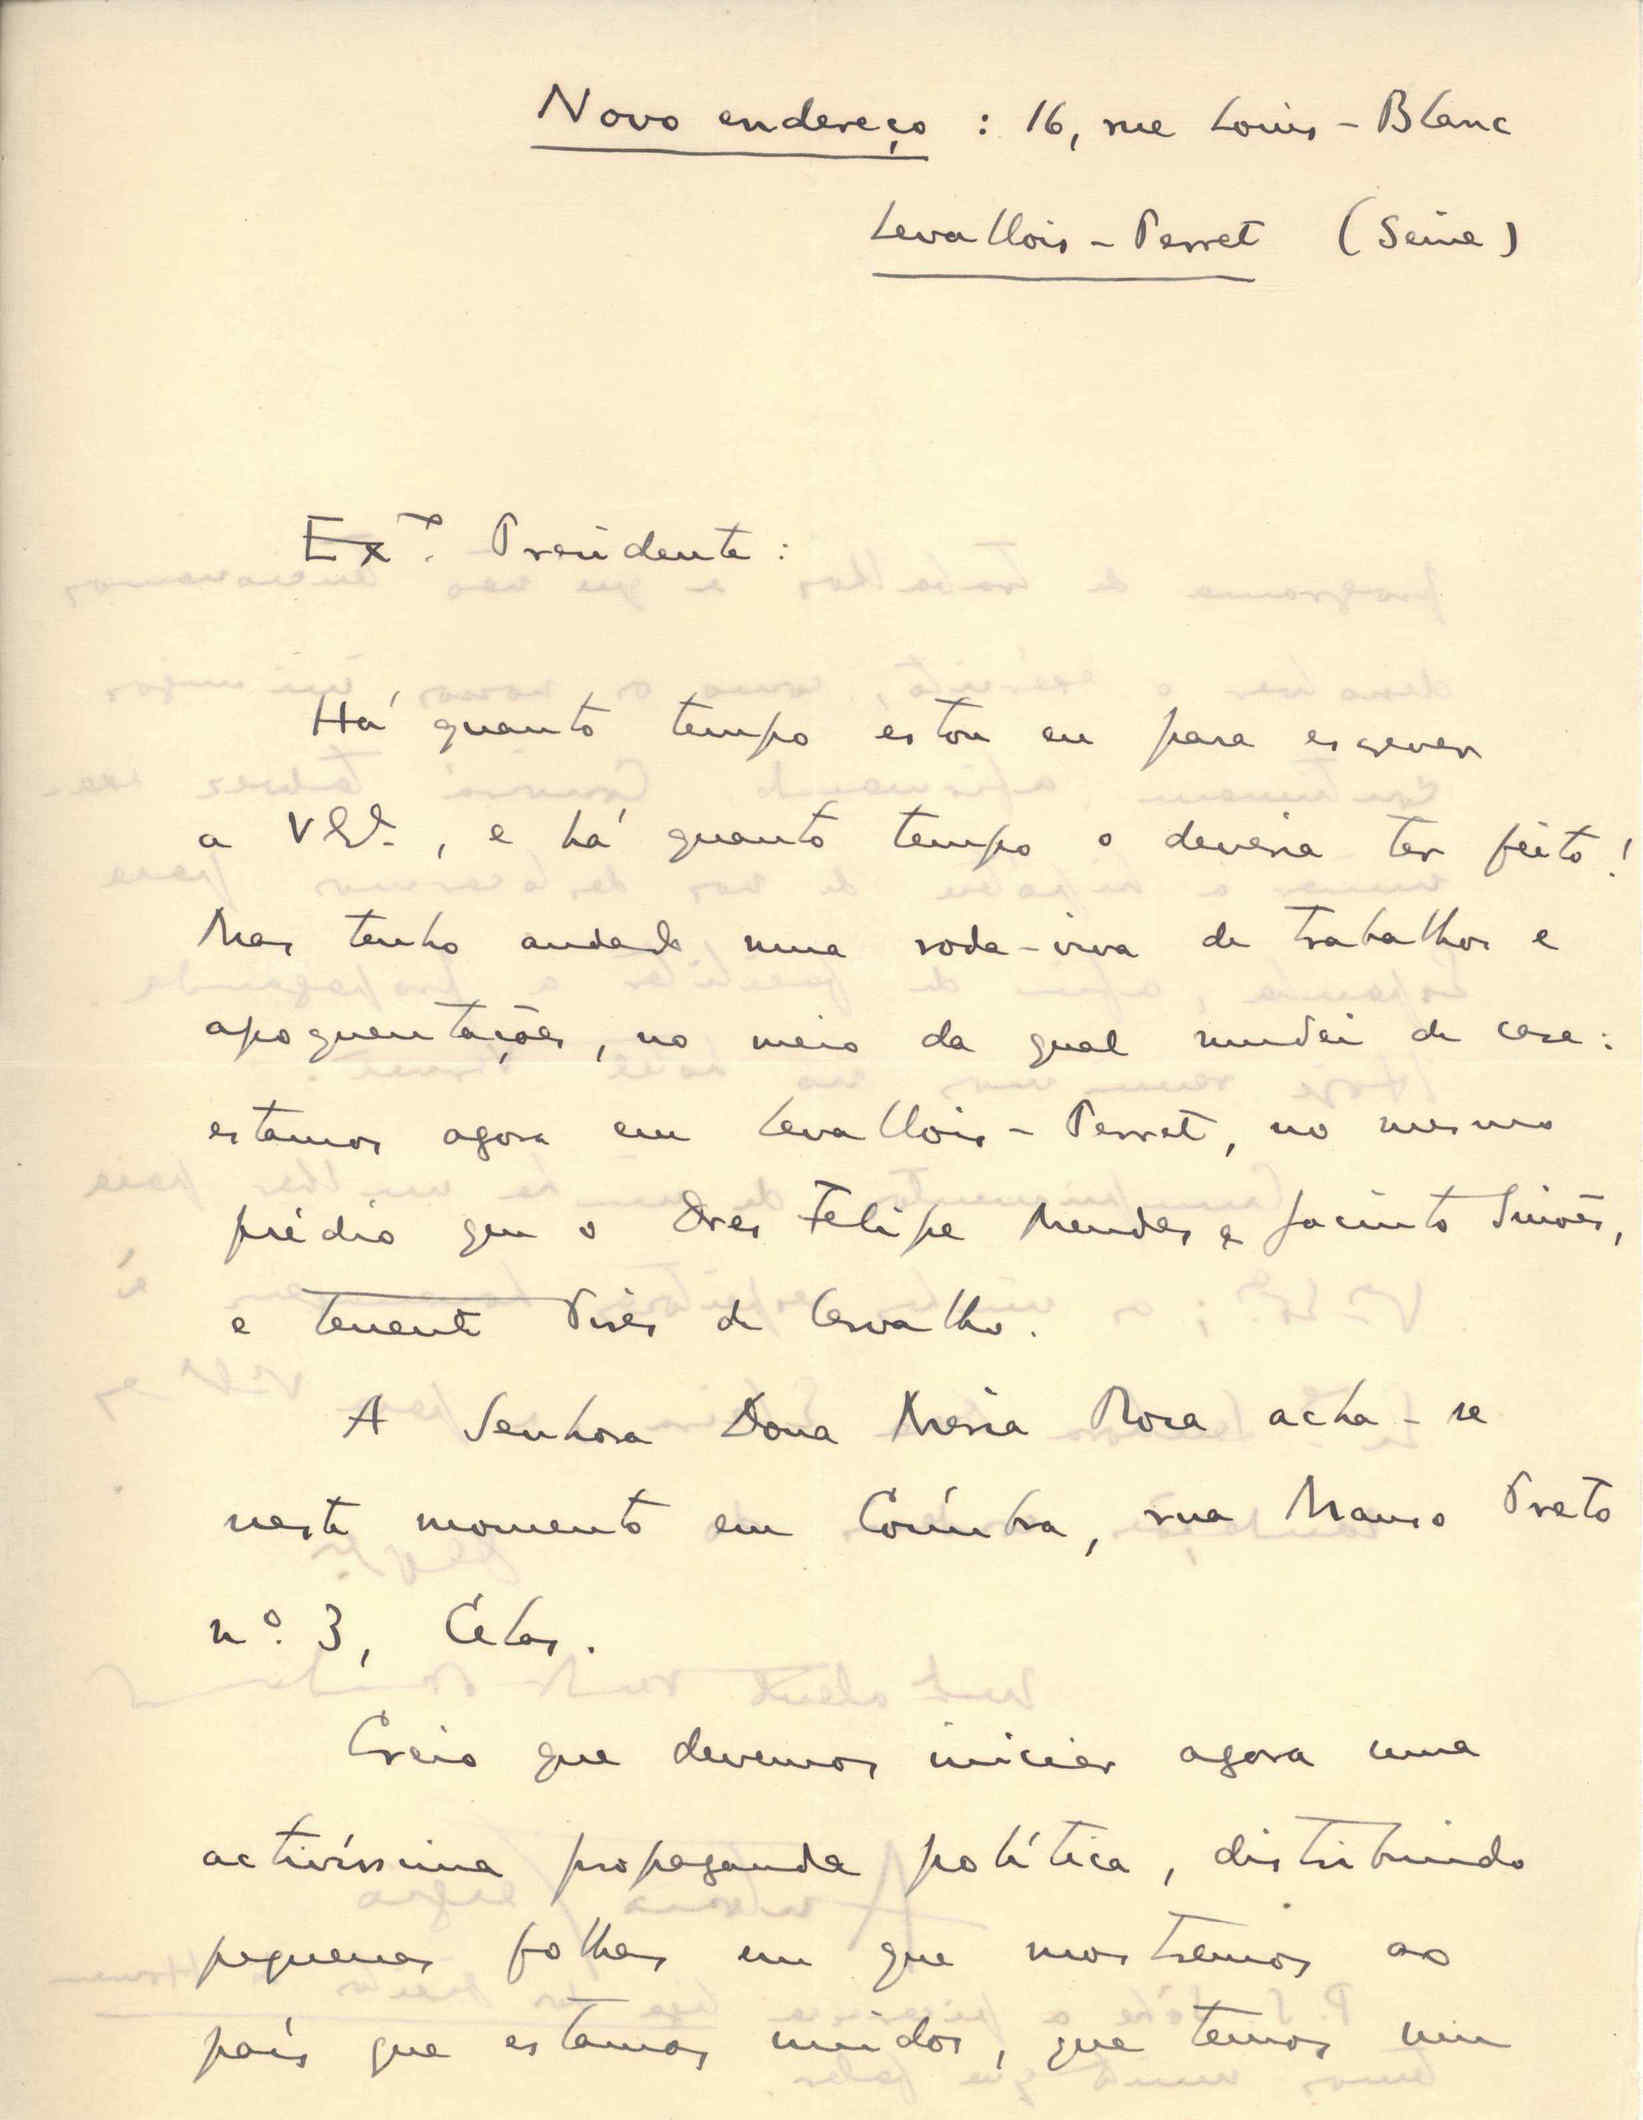 Novo endereço : 16, rue Louis-Blanc
Levallois-Perret (Seine)
Exmo. Presidente :
Há quanto tempo estou eu para escrever
a V Exa., e há quanto tempo o deveria ter feito!
Mas tenho andado numa roda-viva de trabalhos e
apoquentações, no meio da qual mudei de casa :
estamos agora em Levallois-Perret, no mesmo
prédio que o Dres Felipe Mendes e Jacinto Simões,
e tenente Pires de Carvalho.
A Senhora Dona Maria Rosa acha-se
neste momento em Coímbra, rua Preto
nº. 3, Célas.
Creio que devemos iniciar agora uma
activíssima propaganda política, distribuindo
pequenas folhas em que mostremos ao
país que estamos unidos, que temos um